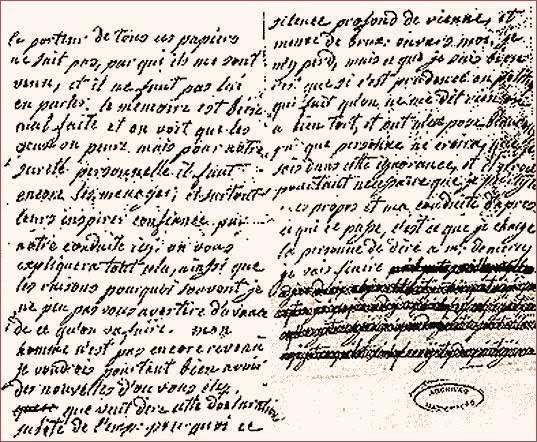 le porteur de tous ces papiers
ne sait pas, par qui ils me sont
venu, et il ne faut pas lui
en parler. le memoire est bien
mal faite et on voit que les
ont peur, mais pour notre
sureté personnelle il faut
encore les menager, et surtout
leurs inspirer confiance par
notre conduite ici on vous
expliquera tout cela, ainsi que
les raisons pourquoi souvent je
ne peu pas vous avertire d'avance
de ce qu'on va faire. mon
homme n'est pas encore revenu
je voudrois pourtant bien avoir
des nouvelles d'ou vous etes.
que veut dire cette
subite de l'emp: pourquoi ce
silence profond de vienne, et
meme de brux: envers moi, je
m'y perd, mais ce que je sais bien
c'est que si c'est prudence ou politique
qui fait qu'on ne me dit rien on
a bien tort, et
que personne ne croira que je
sois dans cette ignorance, et
pourtant necessaire que je
mes propos et ma conduite d'apres
ce qui ce passe, c'est ce que je charge
la personne de dire a mr. de mercy
je vais finire
ARCHIVES
NATIONALES